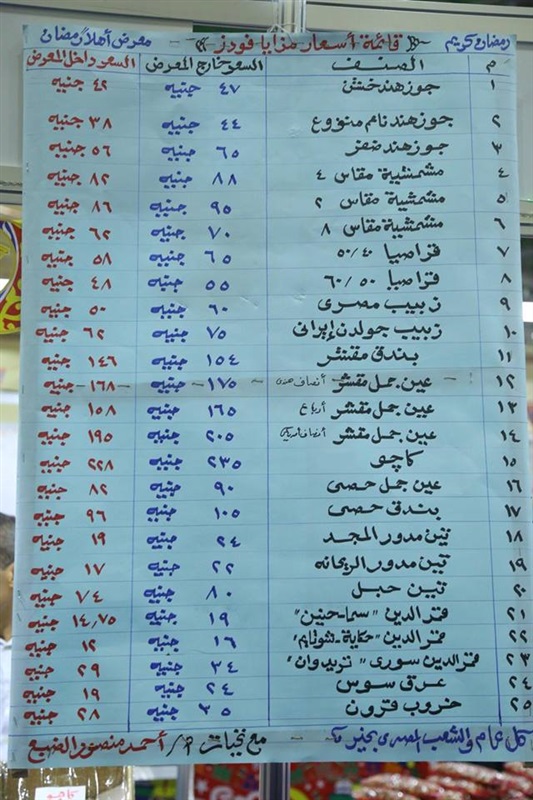 رمضان كريم قائمة أسعار مزايا فودز معرض أهلا رمضان
م الصنف السعر خارج المعرض السعر داخل المعرض
١ جوز هند خشن ٤٧ جنيه ٤٢ جنيه
٢ جوز هند ناعم منزوع ٤٤ جنيه ٣٨ جنيه
٣ جوز هند صفر ٦٥ جنيه ٥٦ جنيه
٤ مشمشية مقاس ٤ ٨٨ جنيه ٨٢ جنيه
٥ مشمشية مقاس ٢ ٩٥ جنيه ٨٦ جنيه
٦ مشمشية مقاس ٨ ٧٠ جنيه ٦٢ جنيه
٧ قراصيا ٥٠/٤٠ ٦٥ جنيه ٥٨ جنيه
٨ قراصيا ٦٠/٥٠ ٥٥ جنيه ٤٨ جنيه
٩ زبيب مصرى ٦٠ جنيه ٥٠ جنيه
١٠ زبيب جولدن إيرانى ٧٥ جنيه ٦٢ جنيه
١١ بندق مقشر ١٥٤ جنيه ١٤٦ جنيه
١٢ عين جمل مقشر أنصاف ١٧٥ جنيه ١٦٨ جنيه
١٣ عين جمل مقشر أرباع ١٦٥ جنيه ١٥٨ جنيه
١٤ عين جمل مقشر أنصاف أمريكى ٢٠٥ جنيه ١٩٥ جنيه
١٥ كاجو ٢٣٥ جنيه ٢٢٨ جنيه
١٦ عين جمل حصى ٩٠ جنيه ٨٢ جنيه
١٧ بندق حصى ١٠٥ جنيه ٩٦ جنيه
١٨ تين مدور المجد ٢٤ جنيه ١٩ جنيه
١٩ تين مدور الريحانه ٢٢ جنيه ١٧ جنيه
٢٠ تين حبل ٨٠ جنيه ٧٤ جنيه
٢١ قمر الدين "سما حنين" ١٩ جنيه ١٤,٧٥ جنيه
٢٢ قمر الدين "حكاية شوام" ١٦ جنيه ١٢ جنيه
٢٣ قمر الدين سورى "تريدوان" ٣٤ جنيه ٢٩ جنيه
٢٤ عرق سوس ٢٤ جنيه ١٩ جنيه
٢٥ خروب قرون ٣٥ جنيه ٢٨ جنيه
كل عام والشعب المصرى بخير مع تحيات أ/ أحمد منصور الضبع
كاجو